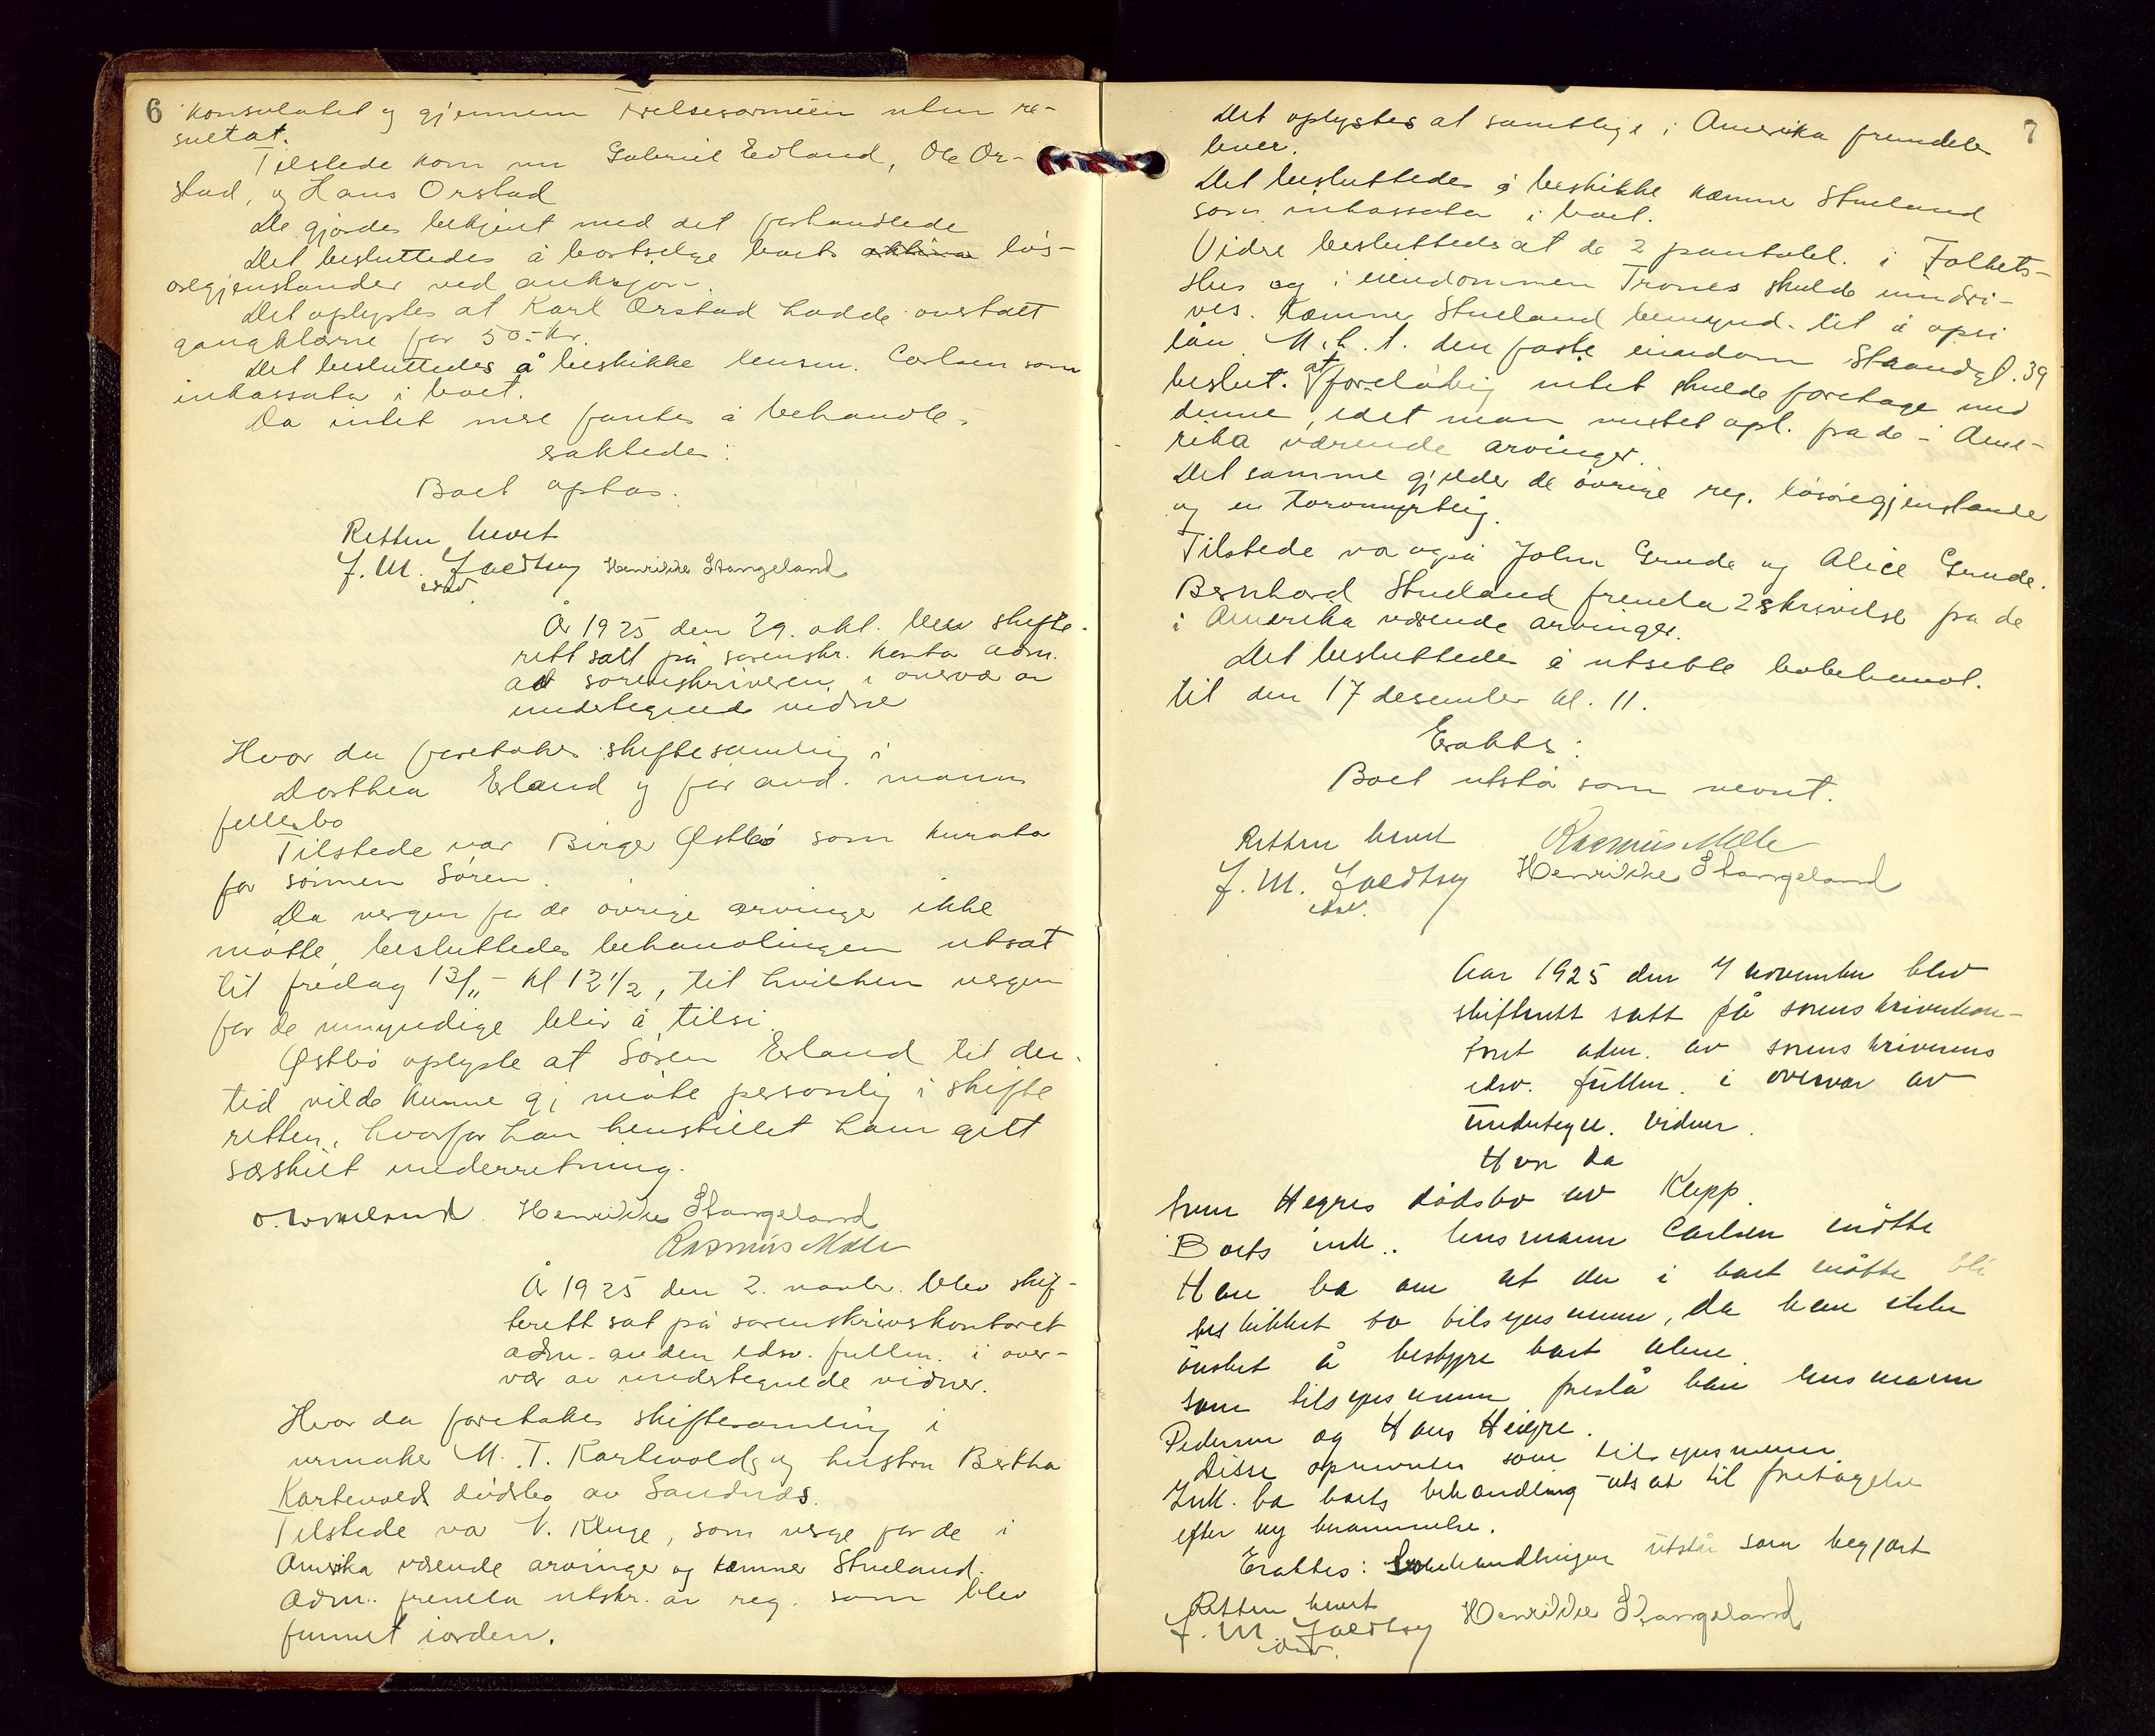 6
konsulatet og gjennem Frelsesarmeen uten re-
sultat.
Tilstede kom nu Gabriel Edland, Ole Or-
stad, og Hans Orstad
De gjordes bekjent med det forhandlede
Det besluttedes å bortselge boets løs-
øregjenstander ved auksjon.
Det oplystes at Karl Orstad hadde overtatt
gangklærne for 50.- kr.
Det besluttedes å beskikke lensm. Carlsen som
inkassator i boet.
Da intet mere fantes å behandle,
eraktedes:
Boet optas.
Retten hevet
J. M. Henrikke Stangeland
edsv.
År 1925 den 29. okt. blev skifte-
rett satt på sorenskr. kontor adm.
av sorenskriveren i overvær av
undertegnede vidner
Hvor da foretokes skiftesamling i
Dorthea Erland og før avd. manns
fellesbo
Tilstede var Birger Østbö som kurator
for sönnen Sören.
Da vergen for de övrige arvinger ikke
mötte, besluttedes behandlingen utsat
til fredag 13/11 - kl 12 1/2, til hvilken vergen
for de umyndige blir å tilsi.
Østbö oplyste at Sören Erland til den
tid vilde kunne gi möte personlig i skifte
retten, hvorfor han henstillet ham gitt
særskilt underretning.
Henrikke Stangeland
Rasmus Mæle
År 1925 den 2. novbr. blev skif-
terett sat på sorenskriverkontoret
adm. av den edsv. fullm. i over-
vær av undertegnede vidner.
Hvor da foretokes skiftesamling i
urmaker M. T. Kartevolds og hustru Bertha
Kartevolds dödsbo av Sandnes.
Tilstede var V. Kluge, som verge for de i
Amerika værende arvinger og kæmner Stueland.
Adm. fremla utskr. av reg. som blev
funnet i orden.
7
Det oplystes at samtlige i Amerika fremdeles
lever.
Det besluttedes å beskikke kæmner Stueland
som inkassator i boet.
Videre besluttedes at de 2 pantobl. i Folkets-
Hus og i eiendommen Trones skulde inndri-
ves. Kæmner Stueland bemynd. til å opsi
lån. M. h. t. den faste eiendom Strandgt. 39
beslut. at foreløbig intet skulde foretages med
denne, idet man ventet opl. fra de i Ame-
rika værende arvinger.
Det samme gjelder de övrige reg. lösöregjenstander
og en torvmyrteig.
Tilstede var også John Grude og Alice Grude.
Bernhard Stueland fremla 2 skrivelser fra de
i Amerika værende arvinger.
Det besluttedes å utsette bobehandl.
til den 17 desember kl. 11.
Eraktes:
Boet utstår som nevnt.
Retten hevet Rasmus Mæle
J. M. Henrikke Stangeland
edsv.
Aar 1925 den 7 november blev
skifterett satt på sorenskriverkon-
toret adm. av sorenskriverens
edsv. fullm. i overvær av
undertegn. vidner.
Hvor da
Sven Hegres dödsbo av Klepp.
Boets ink. lensmann Carlsen mötte
Han ba om at der i boet måtte bli
beskikket to tilsynsmenn, da han ikke
önsket å bestyre boet alene.
Som tilsynsmenn foreslå han lensmann
Pedersen og Hans Heigre.
Disse opnevntes som tilsynsmenn.
Ink. ba boets behandling utsat til foretagelse
efter ny berammelse.
Eraktes: Bobehandlingen utstår som begjært
Retten hevet
J. M. Henrikke Stangeland
edsv.